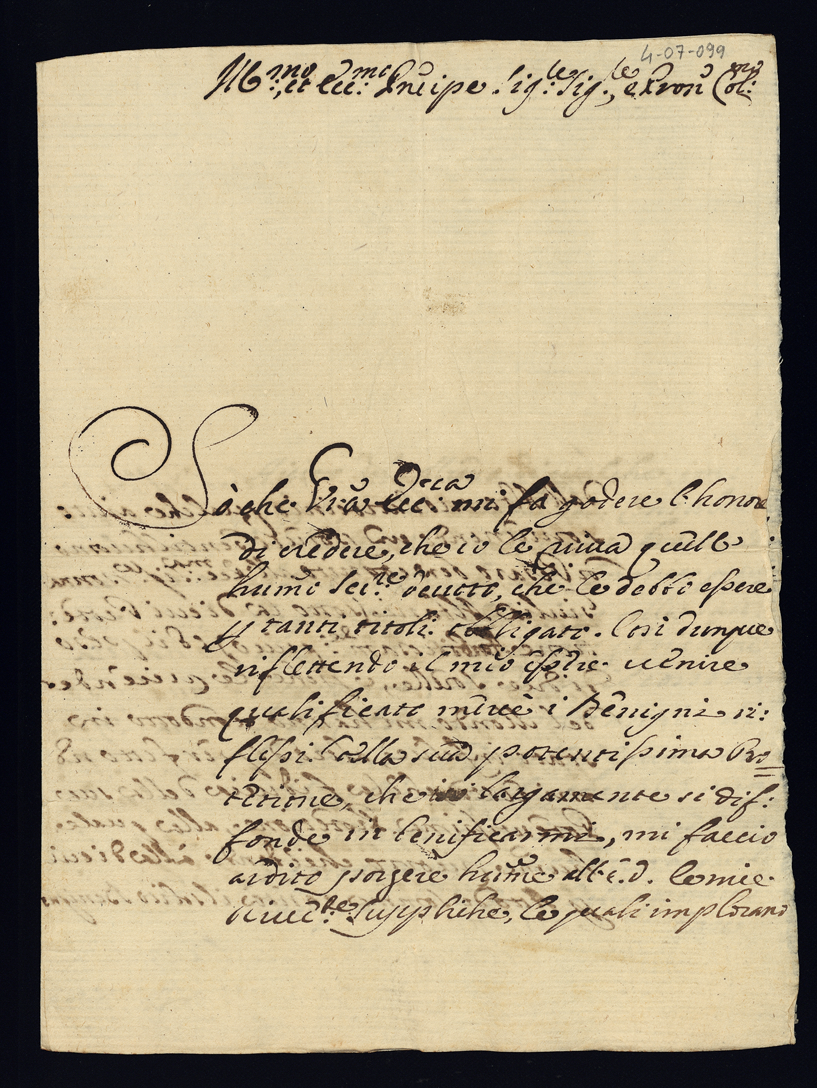 4-07-099
Ill:mo, et Ecc:mo Prncipe Sig:le Sig:le, e Pron Col:mo
Sò che Vra Ecc.za mi fa godere l'honore
di credere, che io le viva quell
humi Ser:re devoto, che le debbo essere
p tanti titoli obligato. Così dunque
riflettendo il mio essere venire
qualificato mercè i Benigni ri:
flessi della sua potentissima Pro=
tetione, che largamente si dif:
fonde in beneficarmi, mi faccio
ardito porgere hume all' E. V. le mie
rive:te Suppliche, le quali implorano